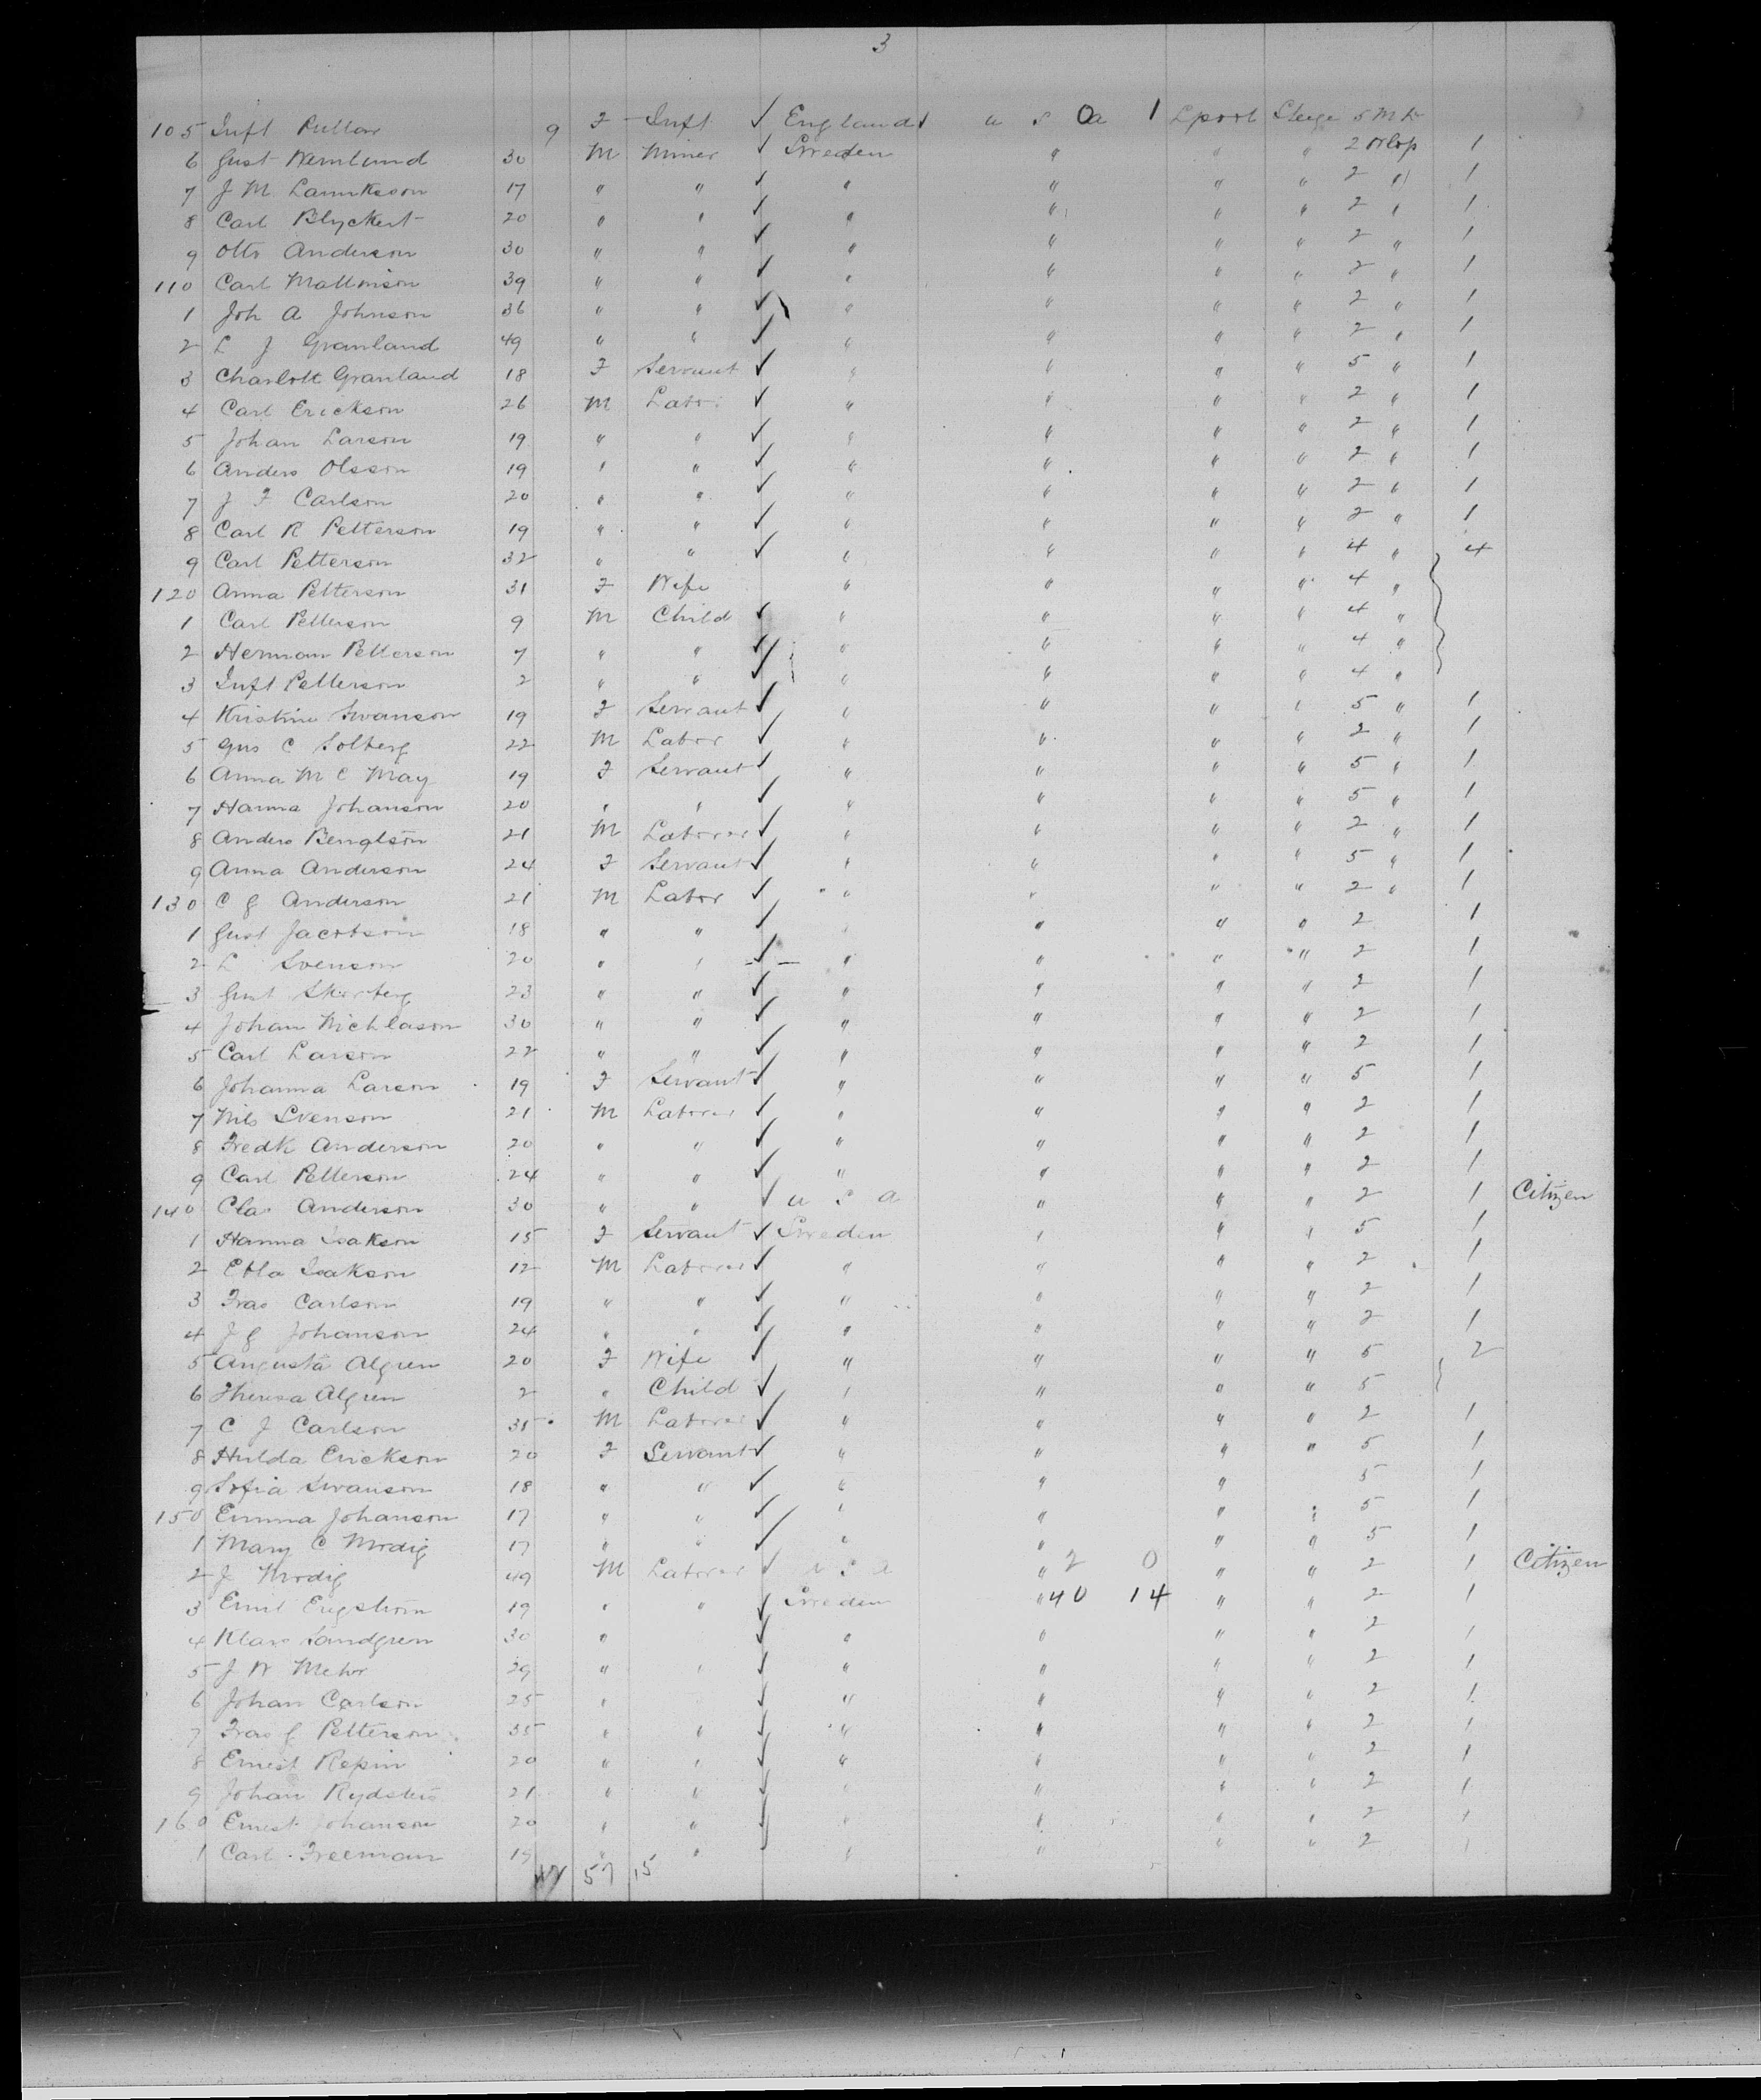 3
105 Inft 9 F Inft ✓ England u s a 0 1 Lpool Steege 5 M D
6 Gust Wernlund 30 M Miner ✓ Sweden " " " 2 Orlop 1
7 J M 17 " " ✓ " " " " 2 " 1
8 Carl Blyckert 20 " " ✓ " " " " 2 " 1
9 Otto Anderson 30 " " ✓ " " " " 2 " 1
110 Carl Mattinson 39 " " ✓ " " " " 2 " 1
1 Joh A Johnson 36 " " ✓ " " " " 2 " 1
2 L J Granland 49 " " ✓ " " " " 2 " 1
3 Charlott Granland 18 F Servant ✓ " " " " 5 " 1
4 Carl Erickson 26 M Labor ✓ " " " " 2 " 1
5 Johan Larson 19 " " ✓ " " " " 2 " 1
6 Anders Olsson 19 " " ✓ " " " " 2 " 1
7 J F Carlson 20 " " ✓ " " " " 2 " 1
8 Carl R Petterson 19 " " ✓ " " " " 2 " 1
9 Carl Petterson 32 " " ✓ " " " " 4 " 4
120 Anna Petterson 31 F Wife " " " " 4 "
1 Carl Petterson 9 M Child ✓ " " " " 4 "
2 Herman Petterson 7 " " ✓ " " " " 4 "
3 Inft Petterson 2 " " ✓ " " " " 4 "
4 Kristine Swanson 19 F Servant ✓ " " " " 5 " 1
5 Gus C Solberg 22 M Labor ✓ " " " " 2 " 1
6 Anna M C May 19 F Servant ✓ " " " " 5 " 1
7 Hanna Johanson 20 " " ✓ " " " " 5 " 1
8 Anders Bengtson 21 M Laborer ✓ " " " " 2 " 1
9 Anna Anderson 24 F Servant ✓ " " " " 5 " 1
130 C G Anderson 21 M Labor ✓ " " " " 2 " 1
1 Gust Jacobson 18 " " ✓ " " " " 2 1
2 L Svenson 20 " " ✓ " " " " 2 1
3 Gust 23 " " ✓ " " " " 2 1
4 Johan Nichlason 30 " " ✓ " " " " 2 1
5 Carl Larson 22 " " ✓ " " " " 2 1
6 Johanna Larson 19 F Servant ✓ " " " " 5 1
7 Nils Svenson 21 M Laborer ✓ " " " " 2 1
8 Fredk Anderson 20 " " ✓ " " " " 2 1
9 Carl Petterson 24 " " ✓ " " " " 2 1
140 Clas Anderson 30 " " ✓ u s a " " " 2 1 Citizen
1 Hanna Isakson 15 F Servant ✓ Sweden " " " 5 1
2 Ebla Isakson 12 M Laborer ✓ " " " " 2 1
3 Fras Carlson 19 " " ✓ " " " " 2 1
4 J G Johanson 24 " " ✓ " " " " 2 1
5 Augusta Algren 20 F Wife ✓ " " " " 5 2
6 Theresa Algren 2 " Child ✓ " " " " 5
7 C J Carlson 35 M Laborer ✓ " " " " 2 1
8 Hulda Erickson 20 F Servant ✓ " " " " 5 1
9 Sofia Swanson 18 " " ✓ " " " 5 1
150 Emma Johanson 17 " " ✓ " " " " 5 1
1 Mary C Modig 17 " " ✓ " " " " 5 1
2 J Modig 49 M Laborer ✓ u s a " 2 0 " " 2 1 Citizen
3 Ernst Engstrom 19 " " ✓ Sweden " 40 14 " " 2 1
4 Klas Sandgren 30 " ✓ " " " " 2 1
5 J W 29 " " ✓ " " " " 2 1
6 Johan Carlson 25 " ✓ " " " " 2 1
7 Fras G Petterson 35 " " ✓ " " " " 2 1
8 Ernest Repin 20 " " ✓ " " " " 2 1
9 Johan 21 " " ✓ " " " " 2 1
160 Ernest Johanson 20 " " ✓ " " " " 2 1
1 Carl Freeman 19 " " " " " " 2 1
57 15